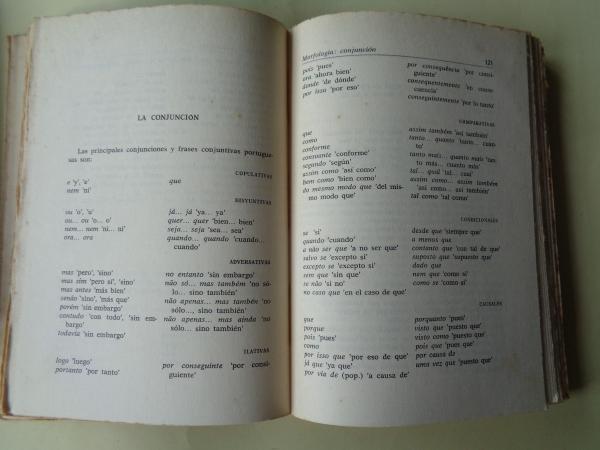 LA CONJUNCION
Las principales conjunciones y frases conjuntivas portugue-
sas son:
COPULATIVAS
e 'y', 'e'
nem 'ni'
que
DISYUNTIVAS
ou 'o', 'u'
ou... ou 'o... o'
nem... nem 'ni... ni'
ora... ora
já... já 'ya... ya'
quer... quer 'bien... bien'
seja... seja 'sea... sea'
quando... quando 'cuando...
cuando'
ADVERSATIVAS
mas 'pero', 'sino'
mas sim 'pero sí', 'sino'
mas antes 'más bien'
senão 'sino', 'más que'
porém 'sin embargo'
contudo 'con todo', 'sin em-
bargo'
todavia 'sin embargo'
no entanto 'sin embargo'
não só... mas também 'no só-
lo... sino también'
não apenas... mas também 'no
sólo..., sino también'
não apenas... mas ainda 'no
sólo... sino también'
ILATIVAS
logo 'luego'
portanto 'por tanto'
por conseguinte 'por consi-
guiente'
Morfología: conjunción
121
pois 'pues'
ora 'ahora bien'
donde 'de dónde'
por isso 'por eso'
por consequência 'por consi-
guiente'
consequentemente 'en conse-
cuencia'
conseguintemente 'por lo tanto'
COMPARATIVAS
que
como
conforme
consoante 'conforme'
segundo 'según'
assim como 'así como'
bem como 'bien como'
da mesmo modo que 'del mis-
mo modo que'
assim também 'así también'
tanto... quanto 'tanto... cuan-
to'
tanto mais... quanto mais 'tan-
to más... cuanto más'
tal... qual 'tal... cual'
assim como... assim também
'así como... así también'
tal como 'tal como'
CONDICIONALES
se 'si'
quando 'cuando'
a não ser que 'a no ser que'
salvo se 'excepto si'
excepto se 'excepto si'
sem que 'sin que'
se não 'si no'
no caso que 'en el caso de que'
desde que 'siempre que'
a menos que
contanto que 'con tal de que'
suposto que 'supuesto que'
dado que
nem que 'como si'
como se 'como si'
CAUSALES
que
porque
pois 'pues'
como
por isso que 'por eso de que'
já que 'ya que'
por via de (pop.) 'a causa de'
porquanto 'pues'
visto que 'puesto que'
visto como 'puesto que'
pois que 'puesto que'
por causa de
uma vez que 'puesto que'